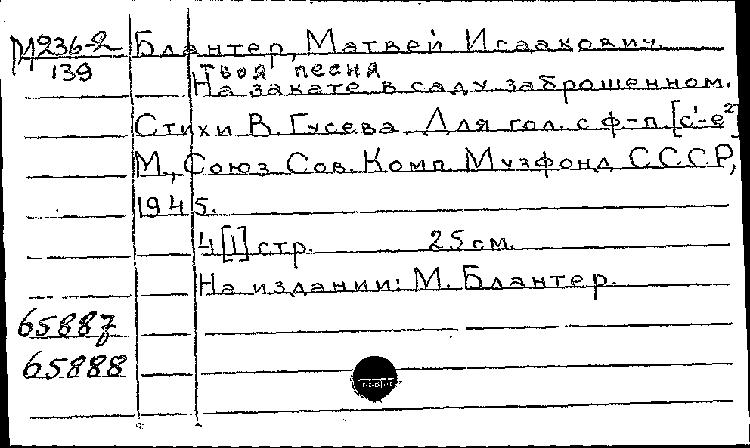 М236-2 Блантер, Матвей Исаакович.
139 Твоя песня
На закате в саду заброшенном.
Стихи В. Гусева. Для гол. с ф-п. [c¹-e²]
М., Союз Сов. Комп. Музфонд СССР,
1945.
4 [1] стр. 25 см.
На издании: М. Блантер.
65887
65888